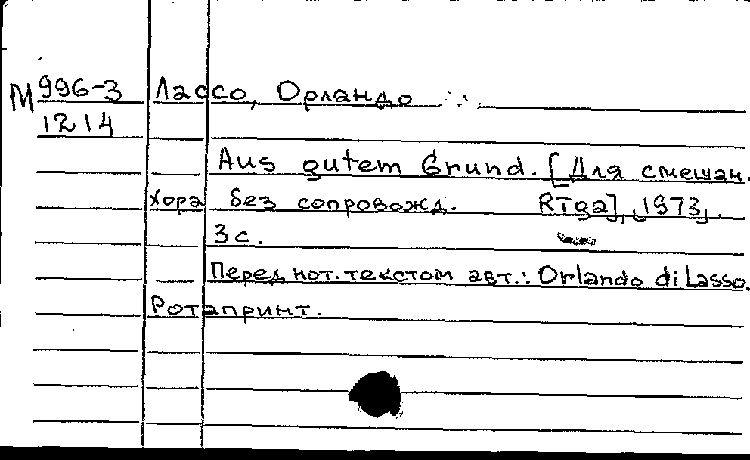 М 996-3 Лассо, Орландо
1214
Aus gutem Grund. [Для смешан.
хора без сопровожд. Rīga], 1973.
3 с.
Перед нот. текстом авт.: Orlando di Lasso.
Ротапринт.